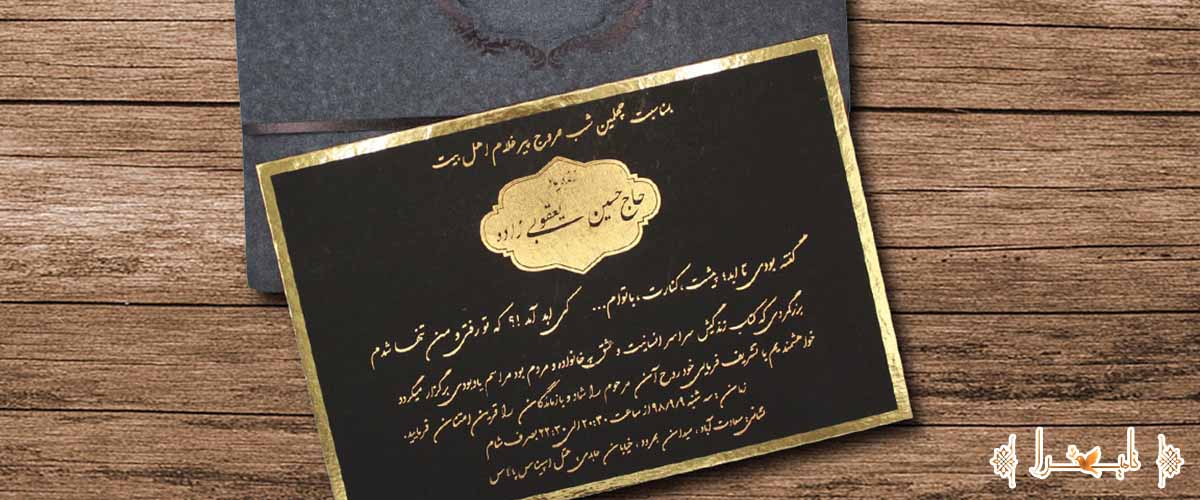 بمناسبت چهلمین شب عروج پیرغلام اهل بیت
زنده یاد
حاج حسین یعقوبی زاده
گفته بودی تا ابد؛ پیشت، کنارت، باتوام... کی ابد آمد !؟ که تو رفتی و من تنها شدم
بزرگمردی که کتاب زندگیش سراسر انسانیت و عشق به خانواده و مردم بود مراسم یادبودی برگزار میگردد
خواهشمندیم با تشریف فرمایی خود روح آن مرحوم را شاد و بازماندگان را قرین امتنان فرمایید.
زمان: سه شنبه ۹۸/۹/۹ از ساعت ۲۰:۳۰ الی ۲۲:۳۰ بصرف شام
نشانی: سعادت آباد، میدان بهرود، خیابان عابدی، هتل اسپیناس پالاس